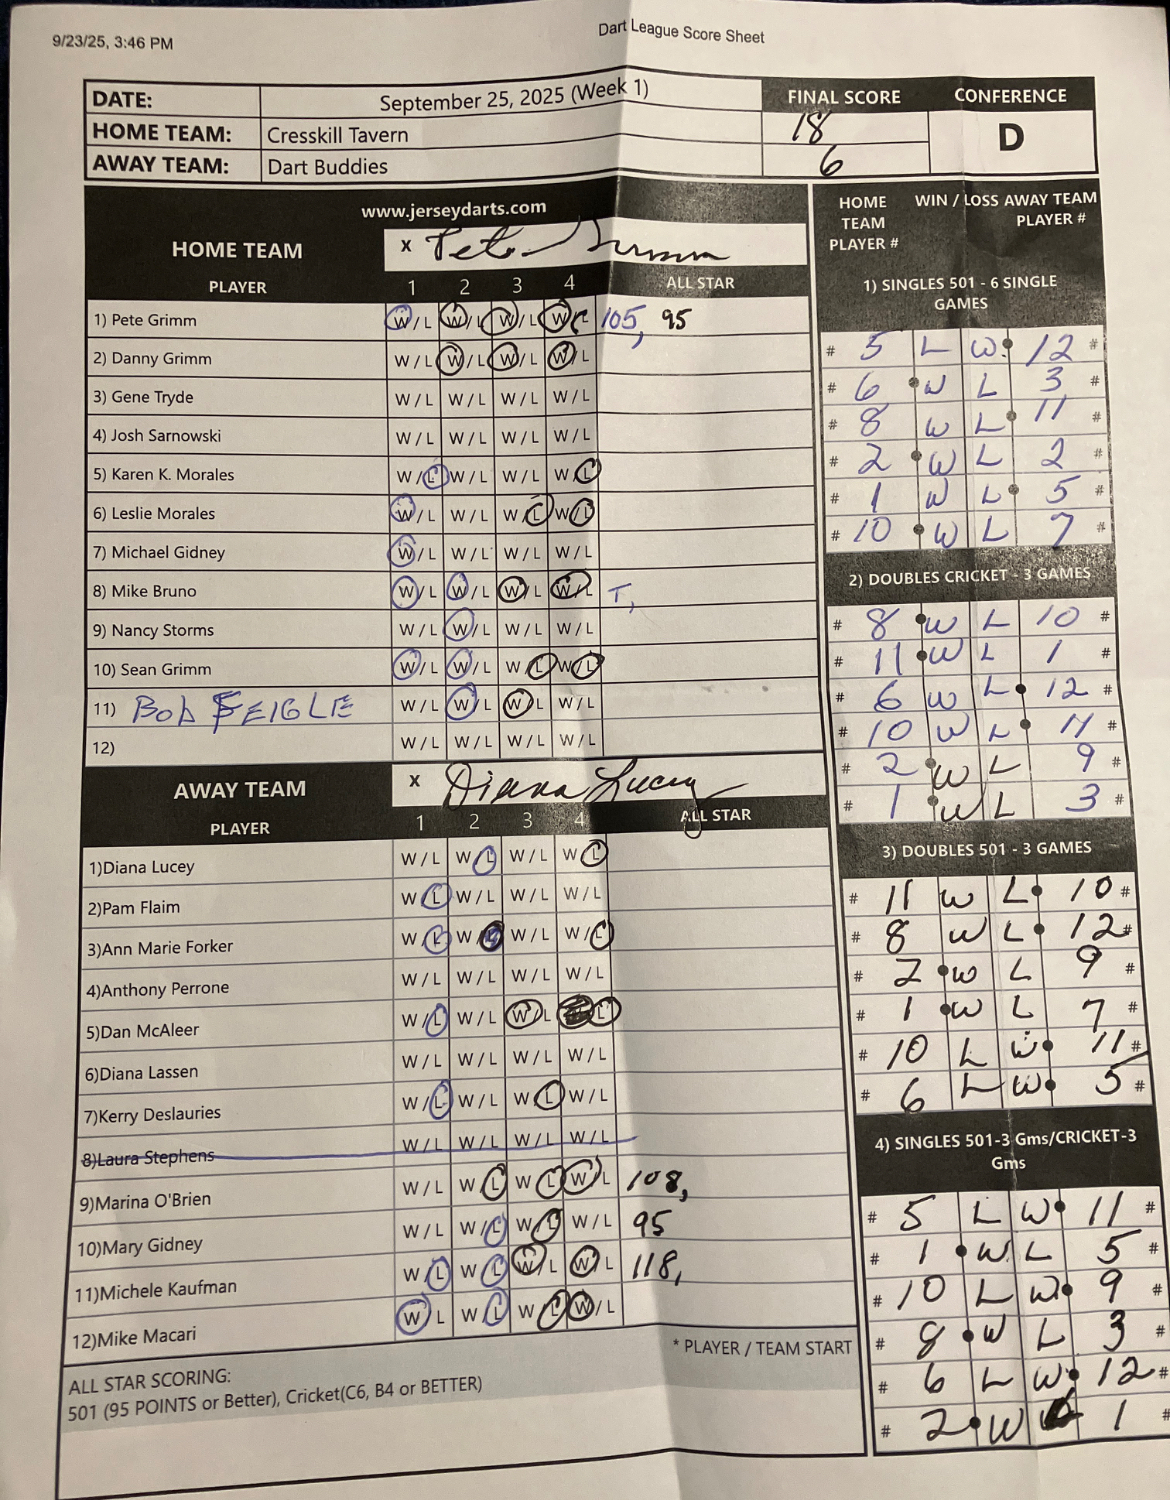 9/23/25, 3:46 PM
Dart League Score Sheet
DATE: September 25, 2025 (Week 1)
HOME TEAM: Cresskill Tavern
AWAY TEAM: Dart Buddies
FINAL SCORE
18
6
CONFERENCE
D
www.jerseydarts.com
HOME TEAM x Pete Grimm
PLAYER 1 2 3 4 ALL STAR
1) Pete Grimm W/L W/L W/L W/L 105, 95
2) Danny Grimm W/L W/L W/L W/L
3) Gene Tryde W/L W/L W/L W/L
4) Josh Sarnowski W/L W/L W/L W/L
5) Karen K. Morales W/L W/L W/L W/L
6) Leslie Morales W/L W/L W/L W/L
7) Michael Gidney W/L W/L W/L W/L
8) Mike Bruno W/L W/L W/L W/L T,
9) Nancy Storms W/L W/L W/L W/L
10) Sean Grimm W/L W/L W/L W/L
11) BOB FEIGLE W/L W/L W/L W/L
12) W/L W/L W/L W/L
AWAY TEAM x Diana Lucey
PLAYER 1 2 3 4 ALL STAR
1)Diana Lucey W/L W/L W/L W/L
2)Pam Flaim W/L W/L W/L W/L
3)Ann Marie Forker W/L W/L W/L W/L
4)Anthony Perrone W/L W/L W/L W/L
5)Dan McAleer W/L W/L W/L W/L
6)Diana Lassen W/L W/L W/L W/L
7)Kerry Deslauries W/L W/L W/L W/L
8)Laura Stephens W/L W/L W/L W/L
9)Marina O'Brien W/L W/L W/L W/L 108,
10)Mary Gidney W/L W/L W/L W/L 95
11)Michele Kaufman W/L W/L W/L W/L 118,
12)Mike Macari W/L W/L W/L W/L
* PLAYER / TEAM START
ALL STAR SCORING:
501 (95 POINTS or Better), Cricket(C6, B4 or BETTER)
HOME TEAM PLAYER # WIN / LOSS AWAY TEAM PLAYER #
1) SINGLES 501 - 6 SINGLE
GAMES
# 5 L W 12 #
# 6 W L 3 #
# 8 W L 11 #
# 2 W L 2 #
# 1 W L 5 #
# 10 W L 7 #
2) DOUBLES CRICKET - 3 GAMES
# 8 W L 10 #
# 11 W L 1 #
# 6 W L 12 #
# 10 W L 11 #
# 2 W L 9 #
# 1 W L 3 #
3) DOUBLES 501 - 3 GAMES
# 11 W L 10 #
# 8 W L 12 #
# 2 W L 9 #
# 1 W L 7 #
# 10 L W 11 #
# 6 L W 5 #
4) SINGLES 501-3 Gms/CRICKET-3
Gms
# 5 L W 11 #
# 1 W L 5 #
# 10 L W 9 #
# 8 W L 3 #
# 6 L W 12 #
# 2 W L 1 #